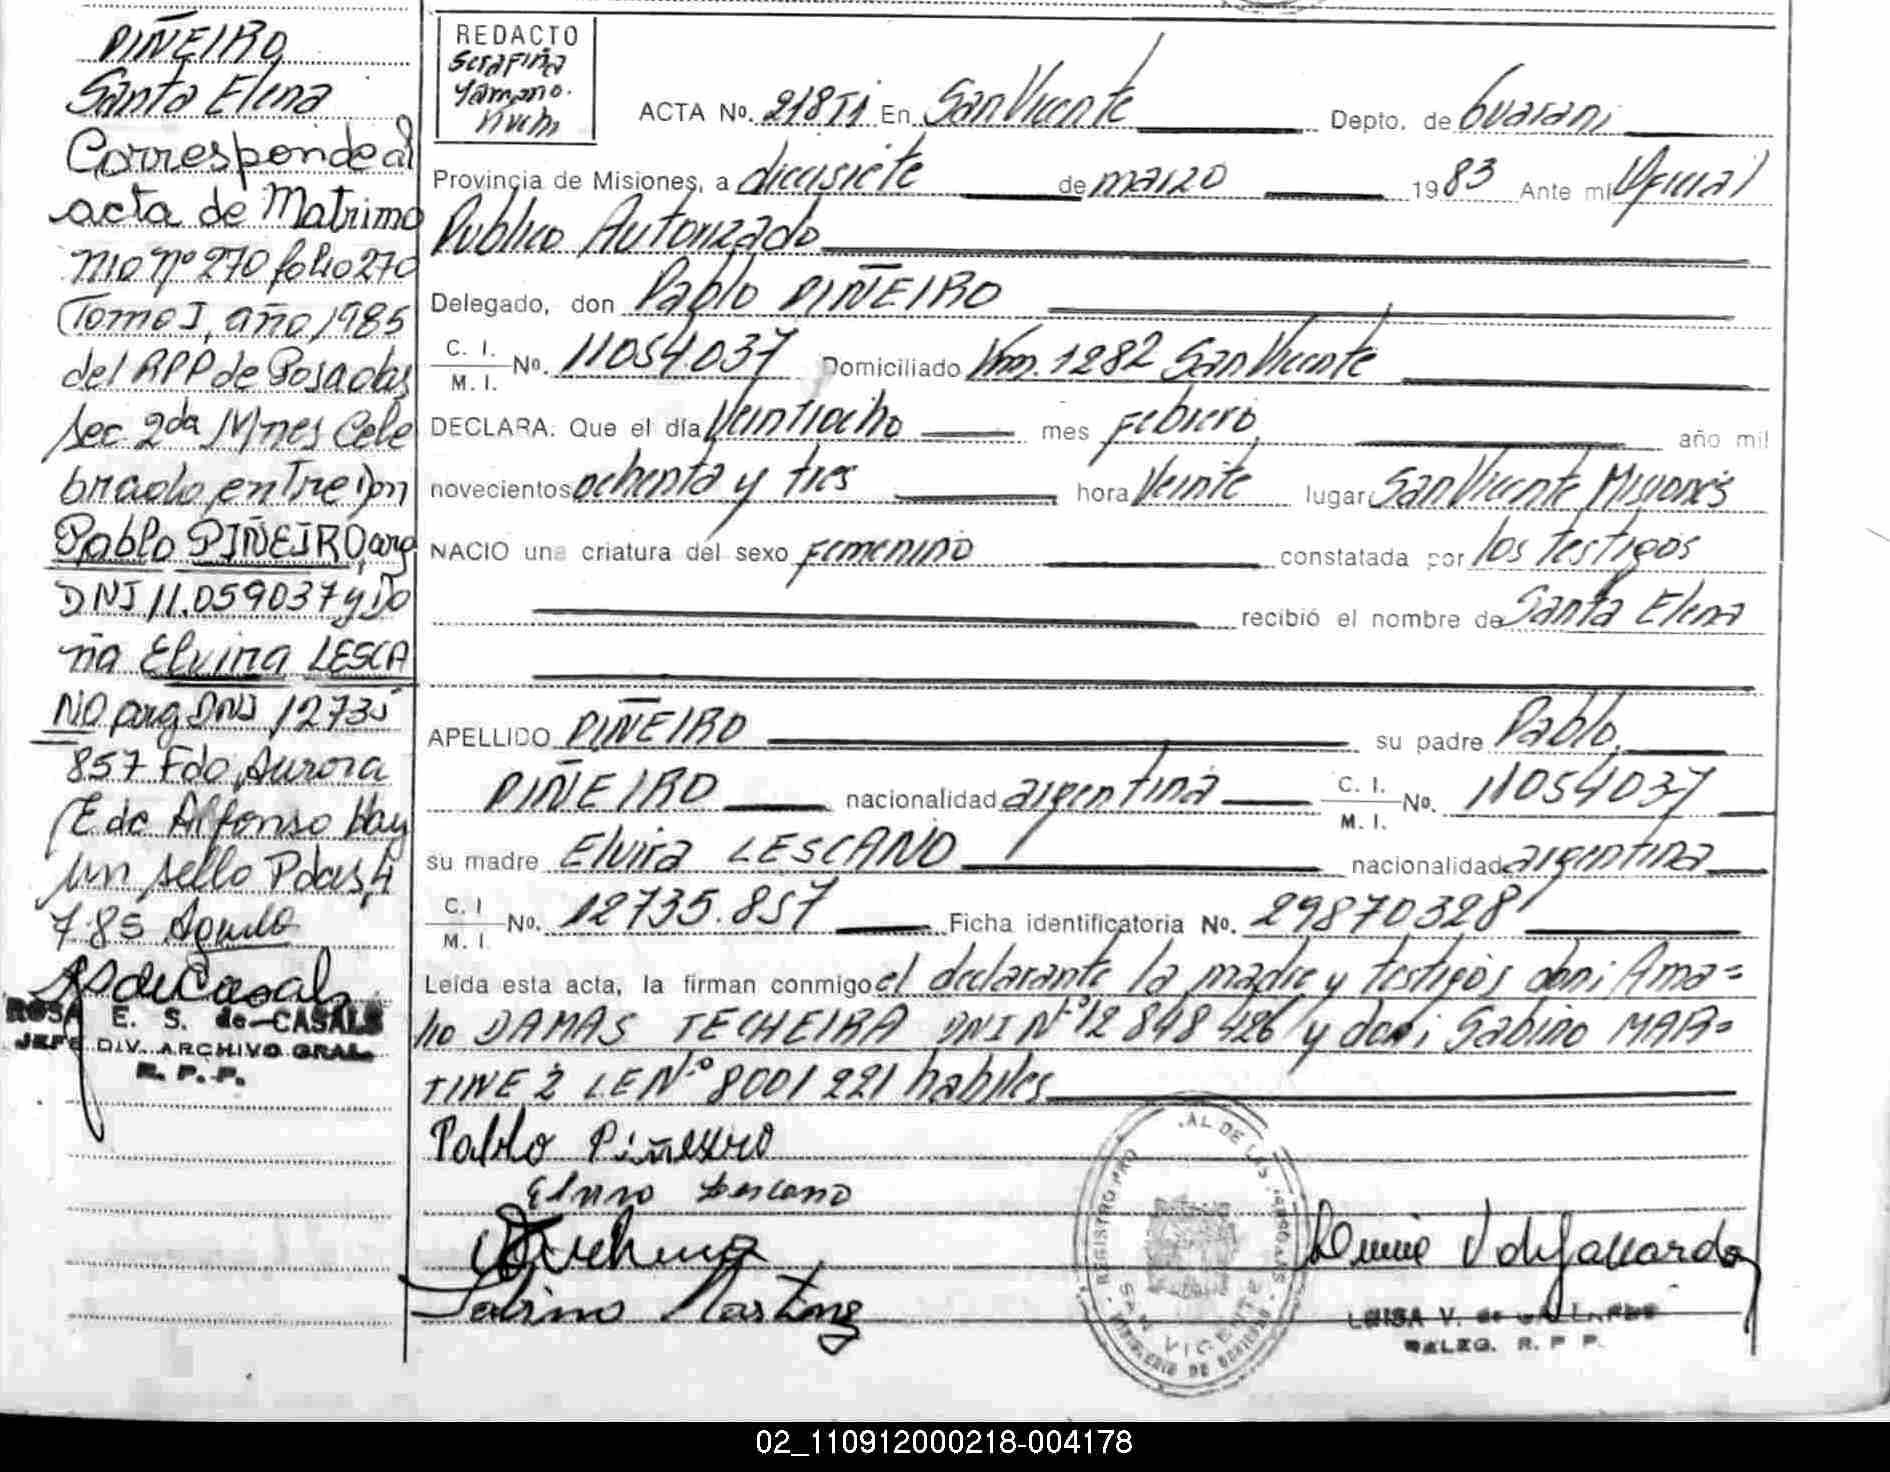 PIÑEIRO
Santa Elena
Corresponde al
acta de Matrimo
nio nº 270 folio 270
Tomo I, año 1985
del RPP de Posadas
Sec 2da Mnes Cele
brado entre Don
Pablo PIÑEIRO, arg
DNI 11.059037 y Do
ña Elvira LESCA
NO arg DNI 12735
857 Fdo, Aurora
E de Alfonso Hay
un sello Pdas, 4
7 85
ROSA E. S. de CASALS
JEFE DIV. ARCHIVO GRAL.
R. P. P.
REDACTO
Serafina
ACTA No. 218 TI En San Vicente Depto. de Guarani
Provincia de Misiones, a diecisiete de marzo 1983 Ante mi Oficial
Publico Autorizado
Delegado, don Pablo PIÑEIRO
C. I.
M. I. No. 11054.037 Domiciliado Km. 1282 San Vicente
DECLARA: Que el día Veintiocho mes Febrero, año mil
novecientos ochenta y tres hora Veinte lugar San Vicente Misiones
NACIO una criatura del sexo Femenino constatada por los testigos
recibió el nombre de Santa Elena
APELLIDO PIÑEIRO su padre Pablo,
PIÑEIRO nacionalidad argentina C. I. M. I. No. 11054037
su madre Elvira LESCANO nacionalidad argentina
C. I. M. I. No. 12735.857 Ficha identificatoria No. 29870328
Leída esta acta, la firman conmigo el declarante la madre y testigos don: Ama=
lio DAMAS TECHEIRA DNI Nº 12 848 426 y don: Sabino MAR=
TINEZ LE Nº 8001221 habiles
Pablo Piñeyro
Elvira Lescano
Sabino Martinez
REGISTRO PRO AL DE LAS PERSONAS
SAN VICENTE
LUISA V. de GALLARDO
DELEG. R. P P.
02_110912000218-004178